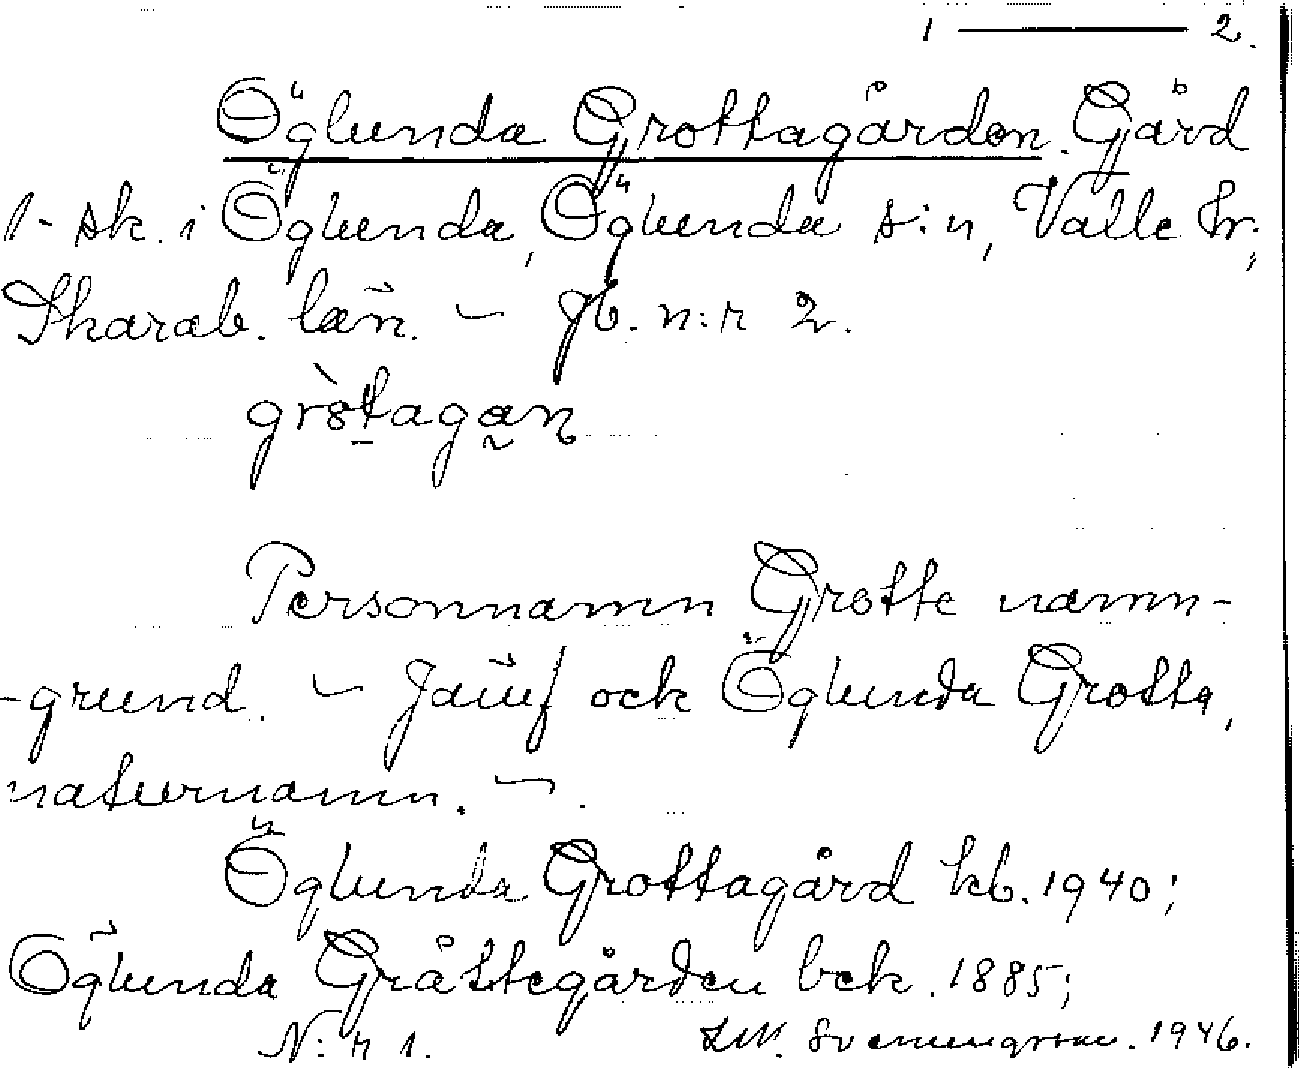 1 — 2.
Öglunda Grottagården. Gård
1- sk. i Öglunda, Öglunda s:n, Valle hr;
Skarab. län. – Jb. n:r 2.
Personnamn Grotte namn-
-grund. – Jämf ock Öglunda Grotta,
naturnamn. –.
Öglunda Grottagård kb. 1940;
Öglunda Gråttegården bek. 1885;
N:r 1. 1946.